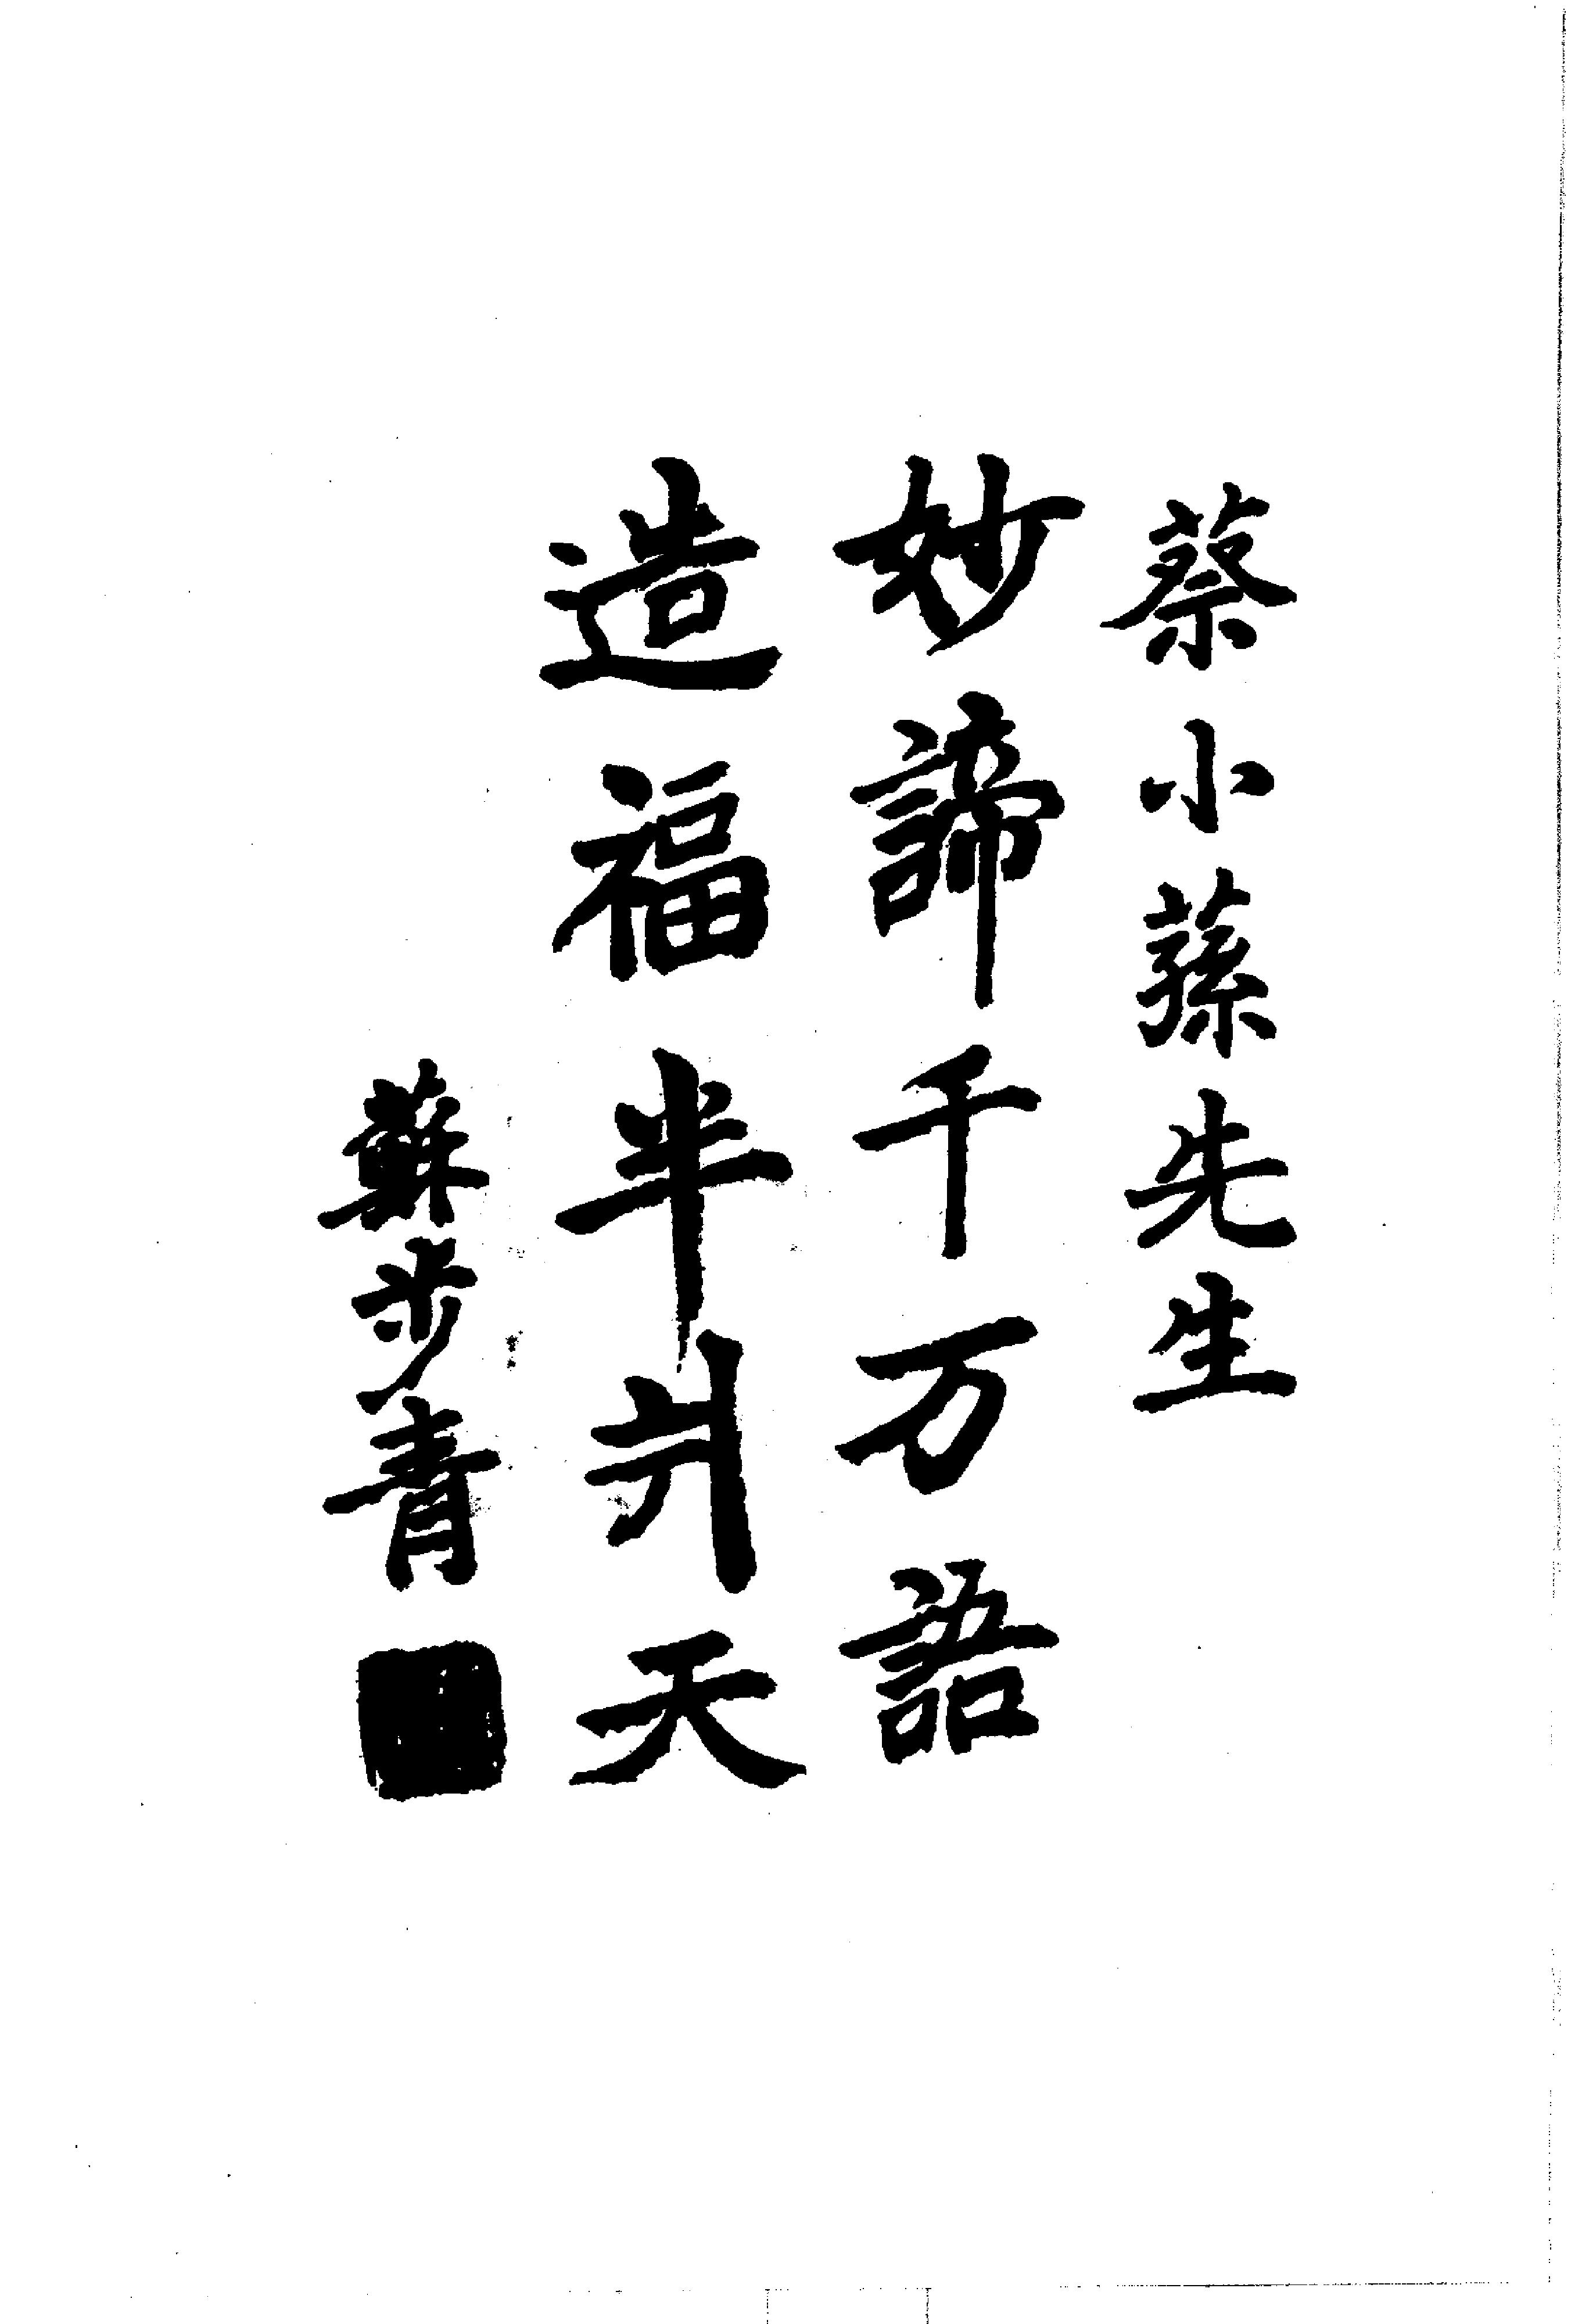 蔡小蓀先生
妙諦千万語
造福半爿天
蘇步青